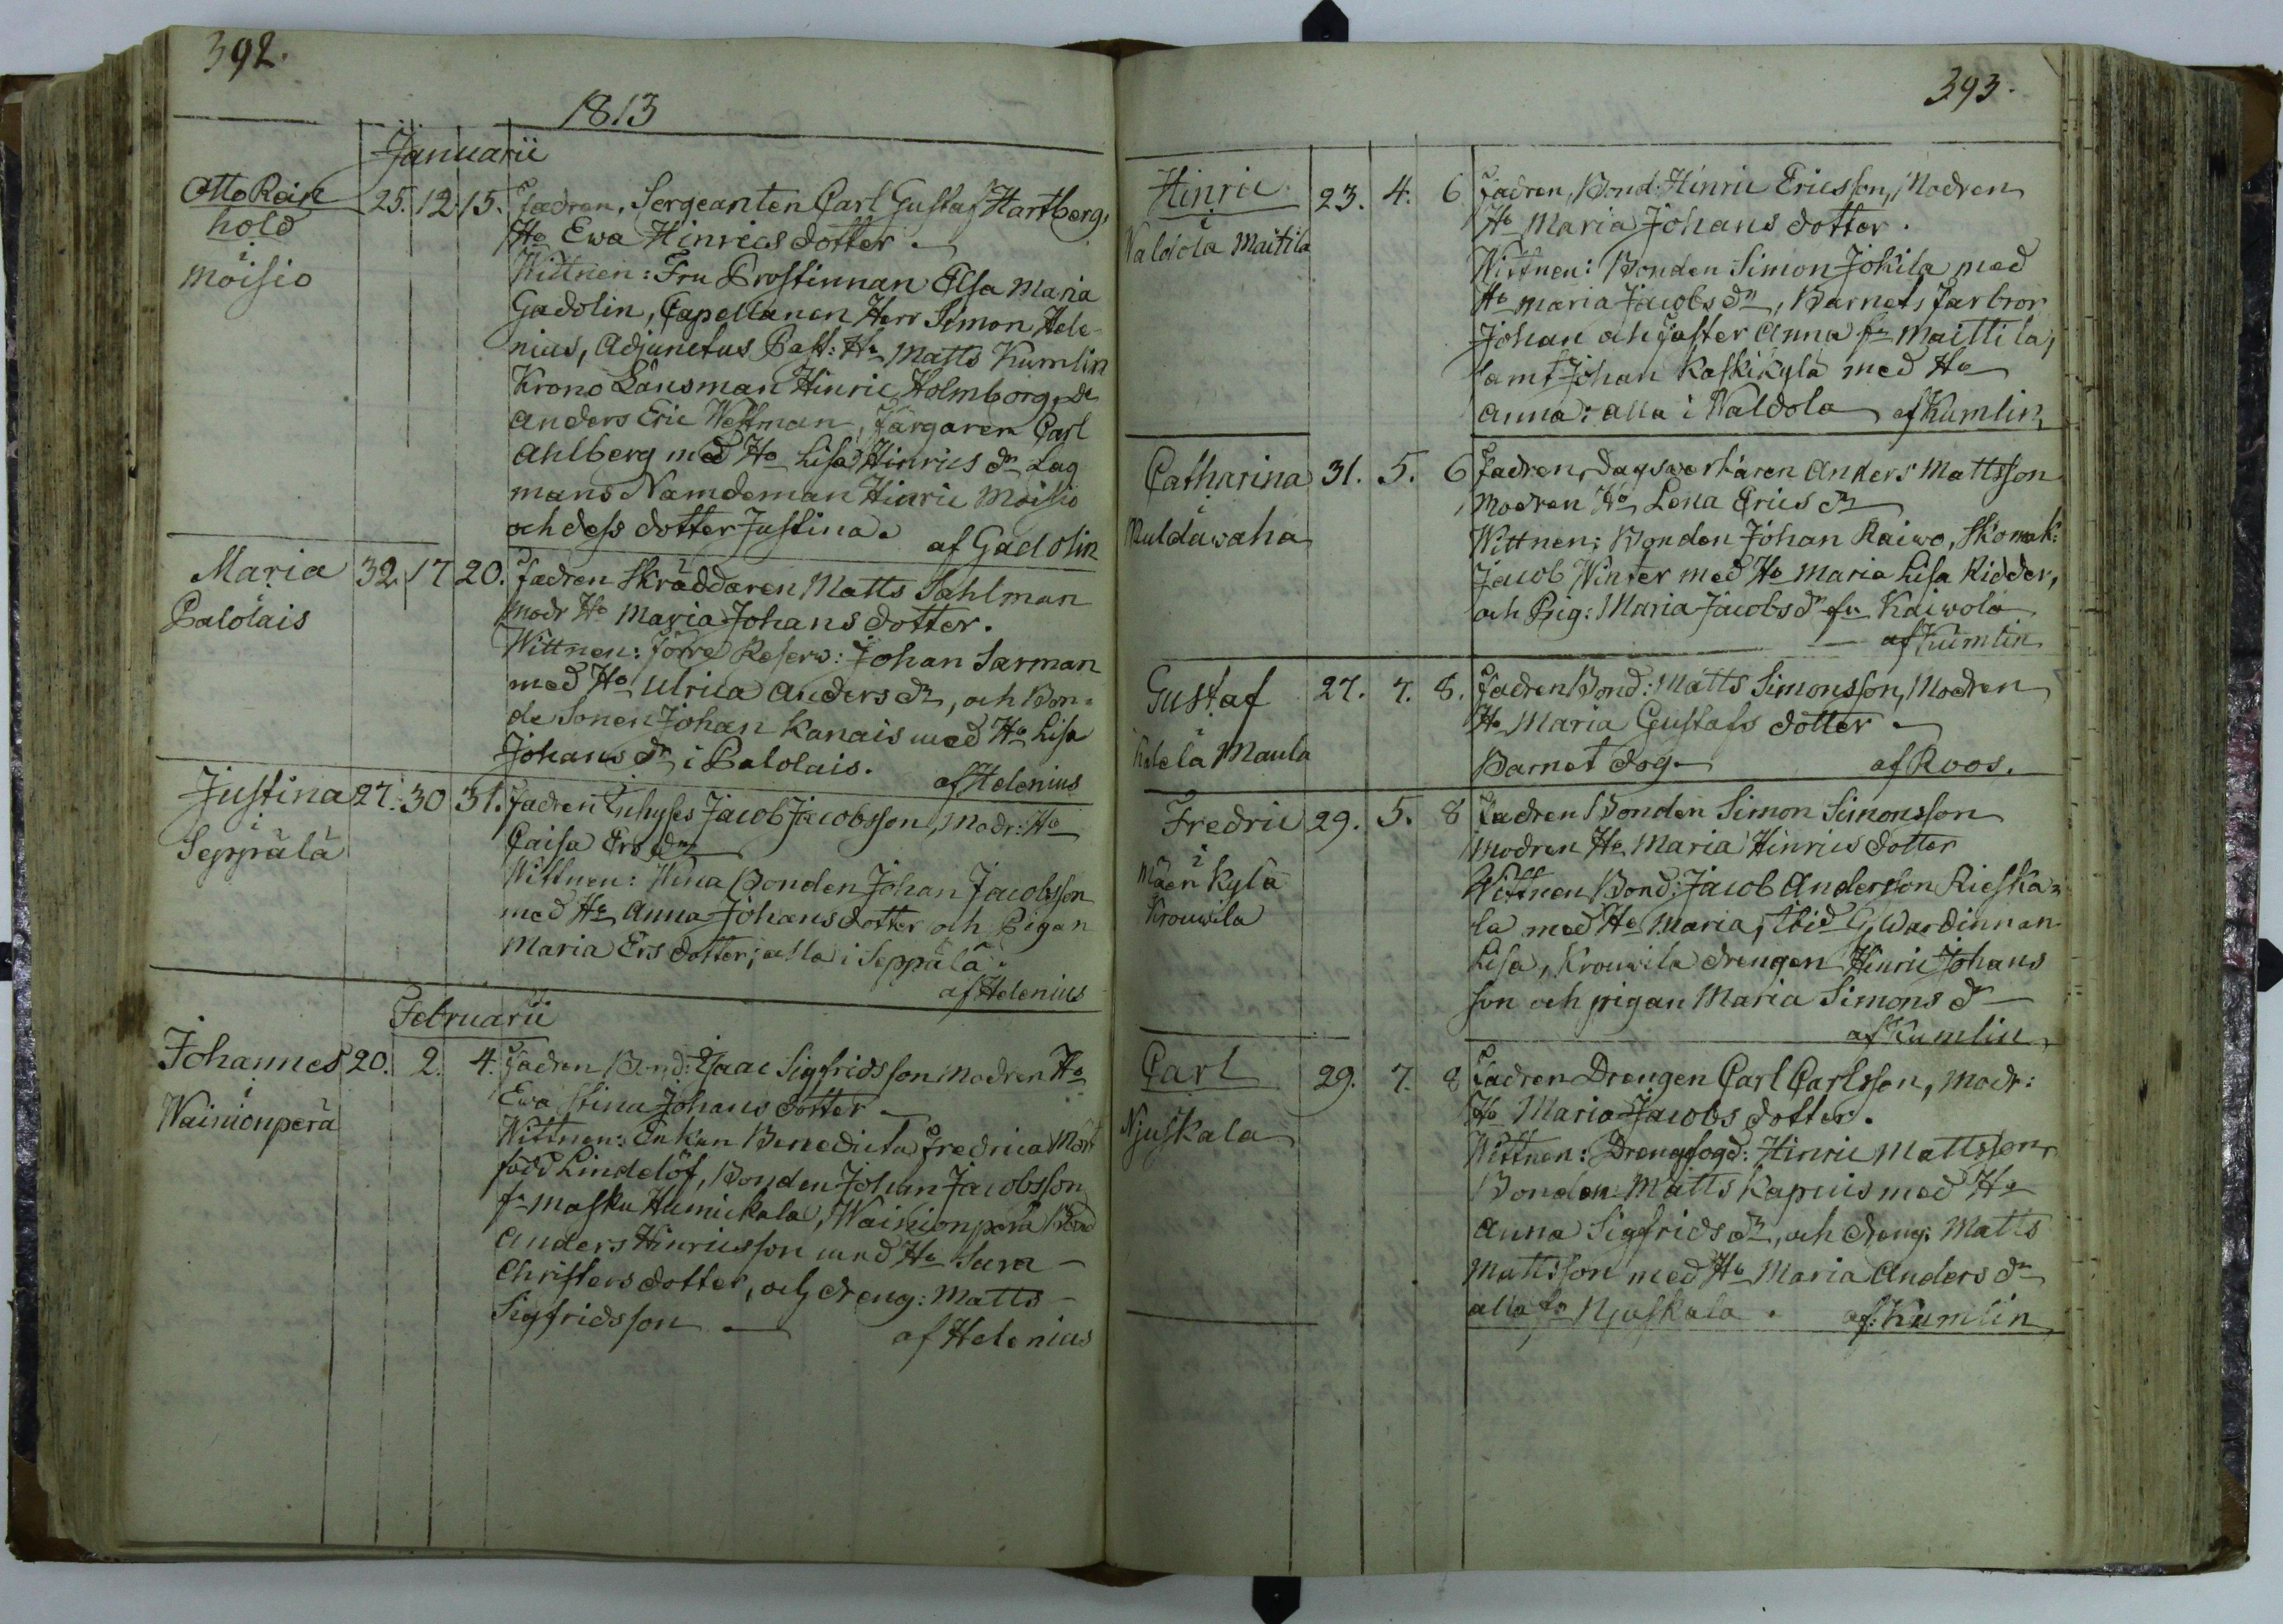 392.
1813
Januarii
Otto Rein 25. 12. 15. Fadren, Sergeanten Carl Gustaf Hartberg,
hold Ho Ewa Hinricsdotter.
i Wittnen: Fru Prostinnan Elsa Maria
Moisio Gadolin, Capellanen Herr Simon Hele-
nius, Adjunctus Past: Hr Matts Kumlin
Krono Länsman Hinric Holmborg,
Anders Eric Westman, Färgaren Carl
Ahlberg med Ho Lisa Hinrics dr Lag
mans Nämdeman Hinric Moisio
och dess dotter Justina. af Gadolin
Maria 32. 17 20. Fadren Skräddaren Matts Sahlman
i modr Ho Maria Johansdotter.
Palolais Wittnen: förre Reserv: Johan Sarman
med Ho Ulrica Anders dr, och Bon-
de Sonen Johan Kanais med Ho Lisa
Johans dr i Palolais. af Helenius
Justina 27. 30 31. Fadren Inhyses Jacob Jacobsson, Modr: Ho
i Caisa Ers dr
Seppälä Wittnen: Bonden Johan Jacobsson
med Ho Anna Johansdotter och Pigan
Maria Ersdotter; alla i Seppälä.
af Helenius
Februarii
Johannes 20. 2. 4. Fadren Bond: Isaac Sigfridsson Modren Ho
i Ewa Stina Johansdotter
Wainionperä Wittnen: Enkan Benedicta Fredrica
född Lindelöf, Bonden Johan Jacobsson
fr Masku Humickala, Wainionperä Bond
Anders Hinricsson med Ho Sara
Christersdotter, och dreng: Matts
Sigfridsson af Helenius
393.
Hinric 23. 4. 6 Fadren, Bond: Hinric Ericsson, Modren
i Ho Maria Johansdotter.
Valdola Maitila Wittnen: Bonden Simon Jokila med
Ho Maria Jacobs dr, Barnets Farbror
Johan och Faster Anna fr Maittila,
samt Johan Kaskikylä med Ho
Anna: alla i Valdola af Kumlin
Catharina 31. 5. 6 Fadren, Dagsverkaren Anders Mattsson
i Modren Ho Lena Erics dr
Muldawaha Wittnen: Bonden Johan Raiwo, Skomak:
Jacob Winter med Ho Maria Lisa Ridder,
och Pig: Maria Jacobs dr fr Kaiwola
af Kumlin
Gustaf 27. 7. 8. Fadren Bond: Matts Simonsson, Modren
i Ho Maria Gustafsdotter
Kalela Maula Barnet dog. af Roos.
Fredric 29. 5. 8 Fadren Bonden Simon Simonsson
i Modren Ho Maria Hinricsdotter
Mäenkylä Wittnen Bond: Jacob Andersson Rieska-
Krouwila la med Ho Maria, Ibid G. Wärdinnan
Lisa, Krouwila drengen Hinric Johans
son och pigan Maria Simons dr
af Kumlin
Carl 29. 7. 8 Fadren Drengen Carl Carlsson, Modr:
i Ho Maria Jacobsdotter.
Njuskala Wittnen: Drengfogd: Hinric Mattsson,
Bonden Matts Kapuis med Ho
Anna Sigfrids dr, och dreng: Matts
Mattsson med Ho Maria Anders dr
alla fr Njuskala. af Kumlin